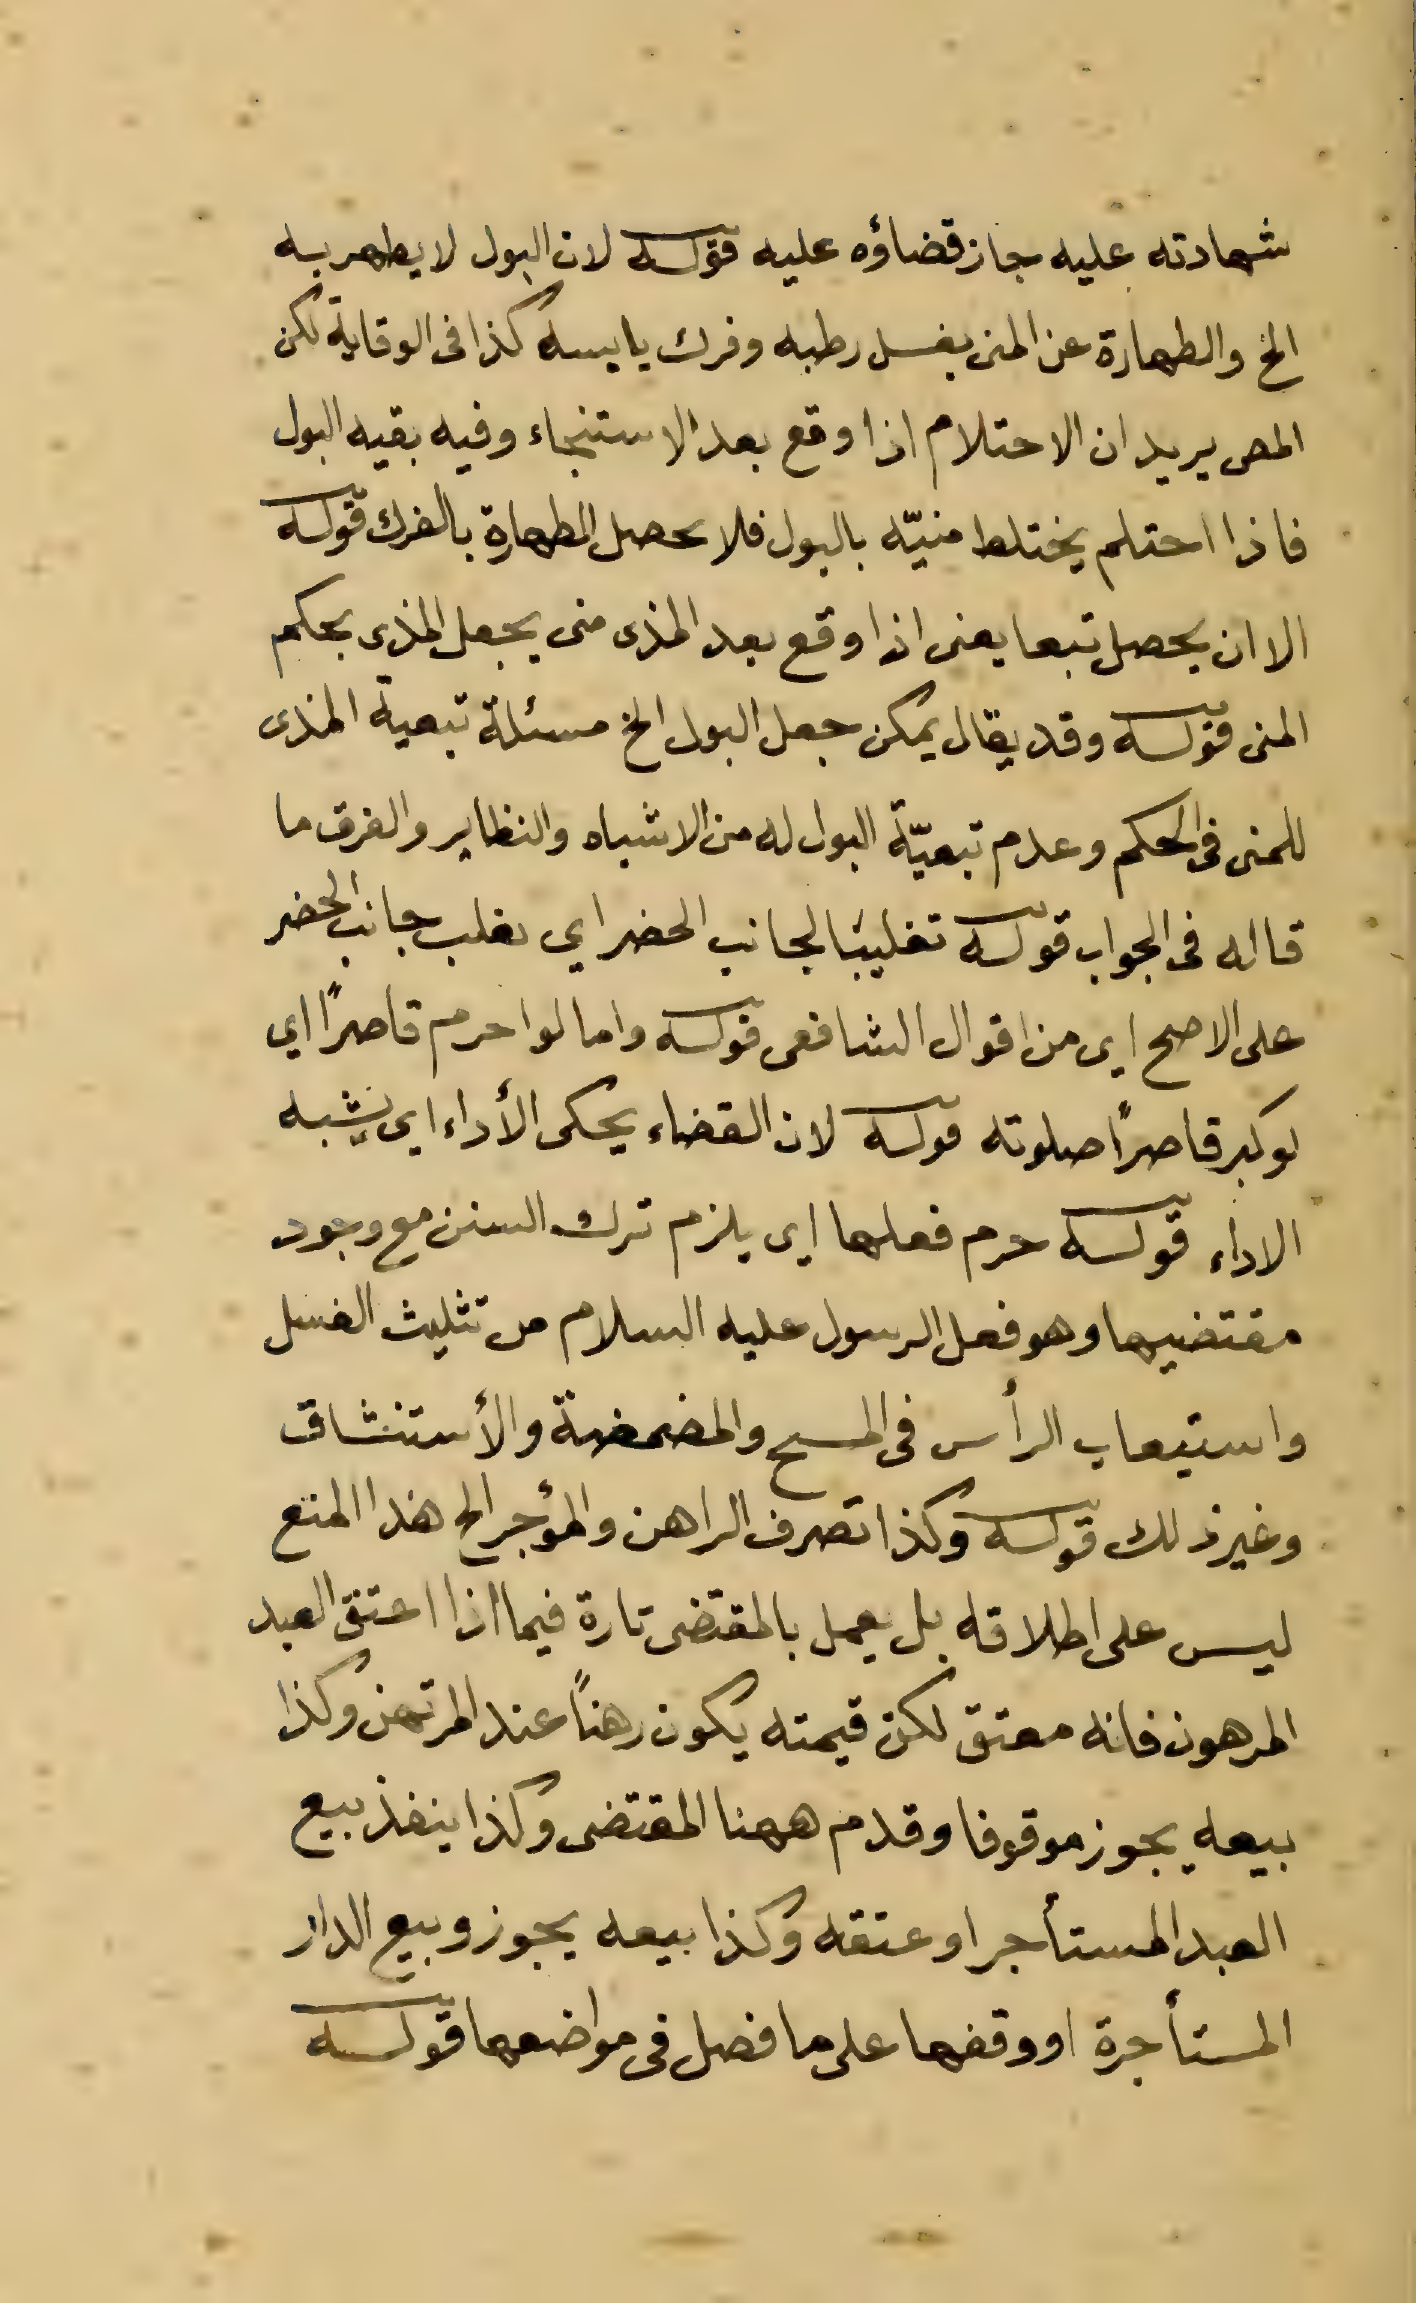 شهادته عليه جاز قضاؤه عليه قوله لان البول لا يطهر به
الخ والطهارة عن المنى بغسل رطبه وفرك يابسه كذا فى الوقاية لكن
المص يريد ان الاحتلام اذا وقع بعد الاستنجاء وفيه بقيه البول
فاذا احتلم يختلط منيّه بالبول فلا يحصل الطهارة بالفرك قوله
الا ان يحصل تبعا يعنى اذا وقع بعد المذى منى يجعل المذى بحكم
المنى قوله وقد يقال يمكن جعل البول الخ مسئلة تبعية المذى
للمنى فى الحكم وعدم تبعيّة البول له من الاشباه والنظاير والفرق ما
قاله فى الجواب قوله تغليبًا لجانب الحضر اي يغلب جانب الحضر
على الاصح اي من اقوال الشافعى قوله واما لو احرم قاصرًا اي
لو كبر قاصرًا صلوته قوله لان القضاء يحكى الأداء اى يشبه
الاداء قوله حرم فعلها اى يلزم ترك السنن مع وجود
مقتضيها وهو فعل الرسول عليه السلام من تثليث الغسل
واستيعاب الرأس فى المسح والمضمضة والأستنشاق
وغير ذلك قوله وكذا تصرف الراهن والمؤجر الخ هذا المنع
ليس على اطلاقه بل يعمل بالمقتضى تارة فيما اذا اعتق العبد
المرهون فانه معتق لكن قيمته يكون رهنًا عند المرتهن وكذا
بيعه يجوز موقوفا وقدم ههنا المقتضى وكذا ينفذ بيع
العبد المستأجر او عتقه وكذا بيعه يجوز وبيع الدار
المستأجرة او وقفها على ما فصل فى مواضعها قوله